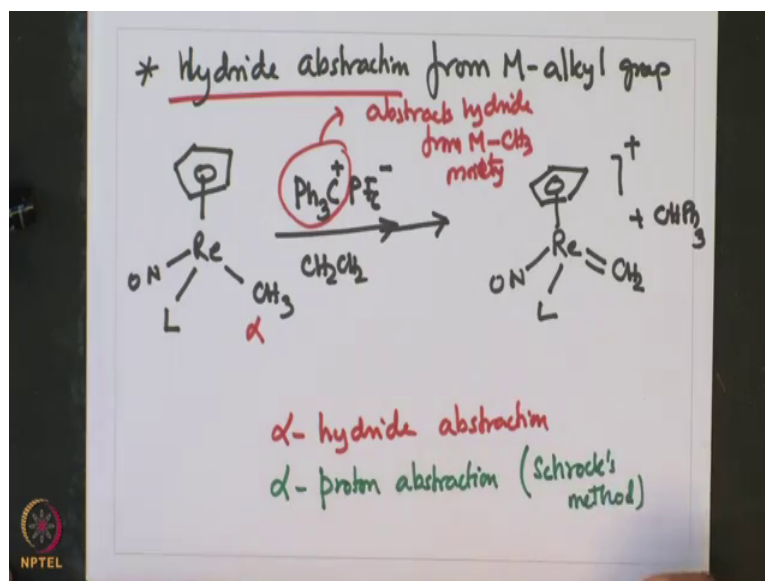 * Hydride abstraction from M-alkyl group
abstracts hydride
from M-CH3
moiety
Ph3C+ PF6-
CH2CH2
ON Re CH3
L
α
]+
+ CHPh3
ON Re=CH2
L
α- hydride abstraction
α- proton abstraction (Schrock's
method)
NPTEL